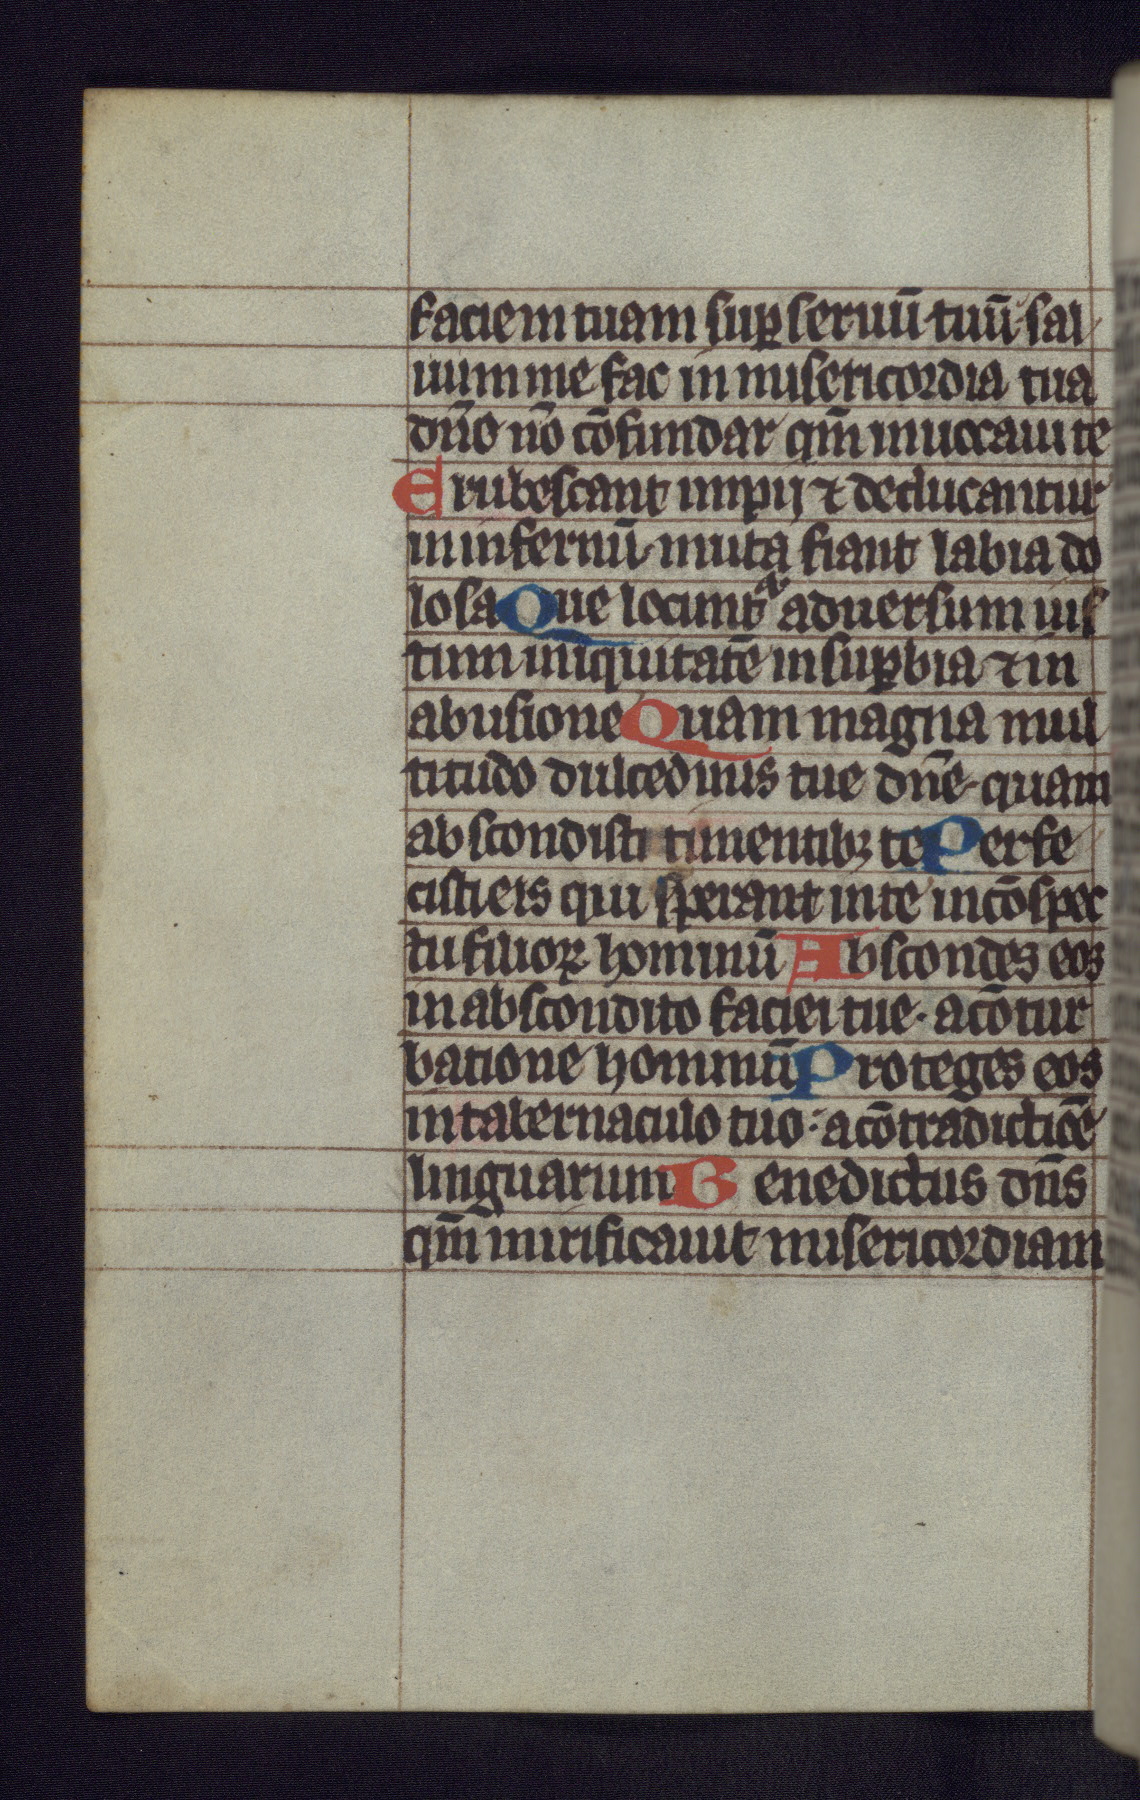 faciem tuam suꝑ seruū tuū sal
uum me fac in misericordia tua
dn̄e nō cōfundar qm̄ inuocaui te
Erubescant impij ⁊ deducantur
in infernū muta fiant labia do
losa Que locuntᷣ aduersum ius
tum iniquitatē in suꝑbia ⁊ in
abusione Quam magna mul
titudo dulcedinis tue dn̄e quam
abscondisti timentibꝫ te Perfe
cisti eis qui sperant in te in cōspec
tu filioꝝ hominū Abscondes eos
in abscondito faciei tue · a cōtur
batione hominū Proteges eos
in tabernaculo tuo · a cōtradictiōe
linguarum Benedictus dn̄s
qm̄ mirificauit misericordiam